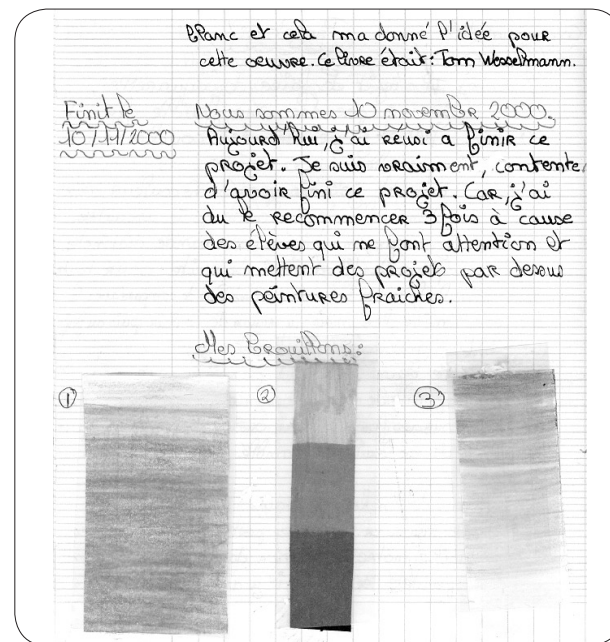 blanc et cela ma donné l'idée pour
cette oeuvre. Ce livre était : Tom Wesselmann.
Finit le
10/11/2000
Nous sommes 10 novembre 2000.
Aujourd'hui, j'ai réussi a finir ce
projet. Je suis vraiment, contente,
d'avoir fini ce projet. Car, j'ai
du le recommencer 3 fois à cause
des élèves qui ne font attention et
qui mettent des projets par dessus
des peintures fraiches.
Mes Brouillons :
1
2
3